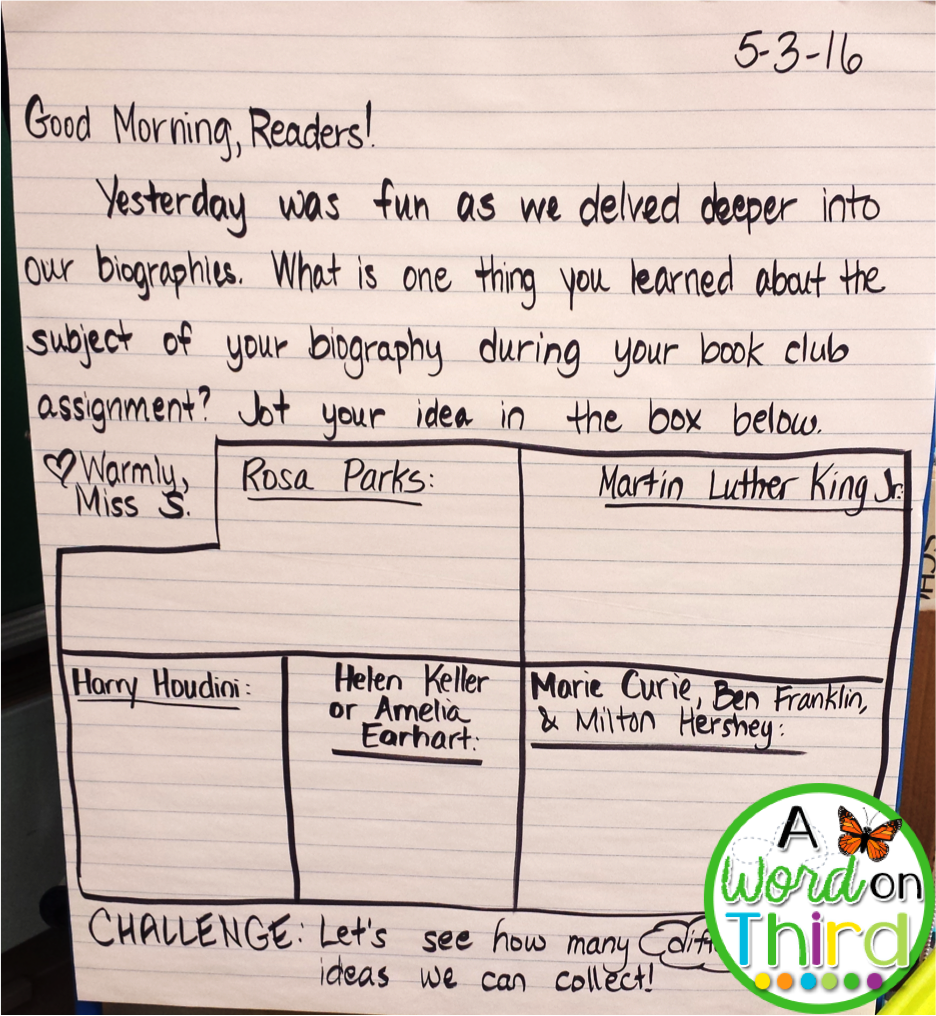 5-3-16
Good Morning, Readers!
Yesterday was fun as we delved deeper into
our biographies. What is one thing you learned about the
subject of your biography during your book club
assignment? Jot your idea in the box below.
♡ Warmly,
Miss S.
Rosa Parks:
Martin Luther King Jr.:
Harry Houdini:
Helen Keller
or Amelia
Earhart:
Marie Curie, Ben Franklin,
& Milton Hershey:
CHALLENGE: Let's see how many
ideas we can collect!
A
Word on
Third